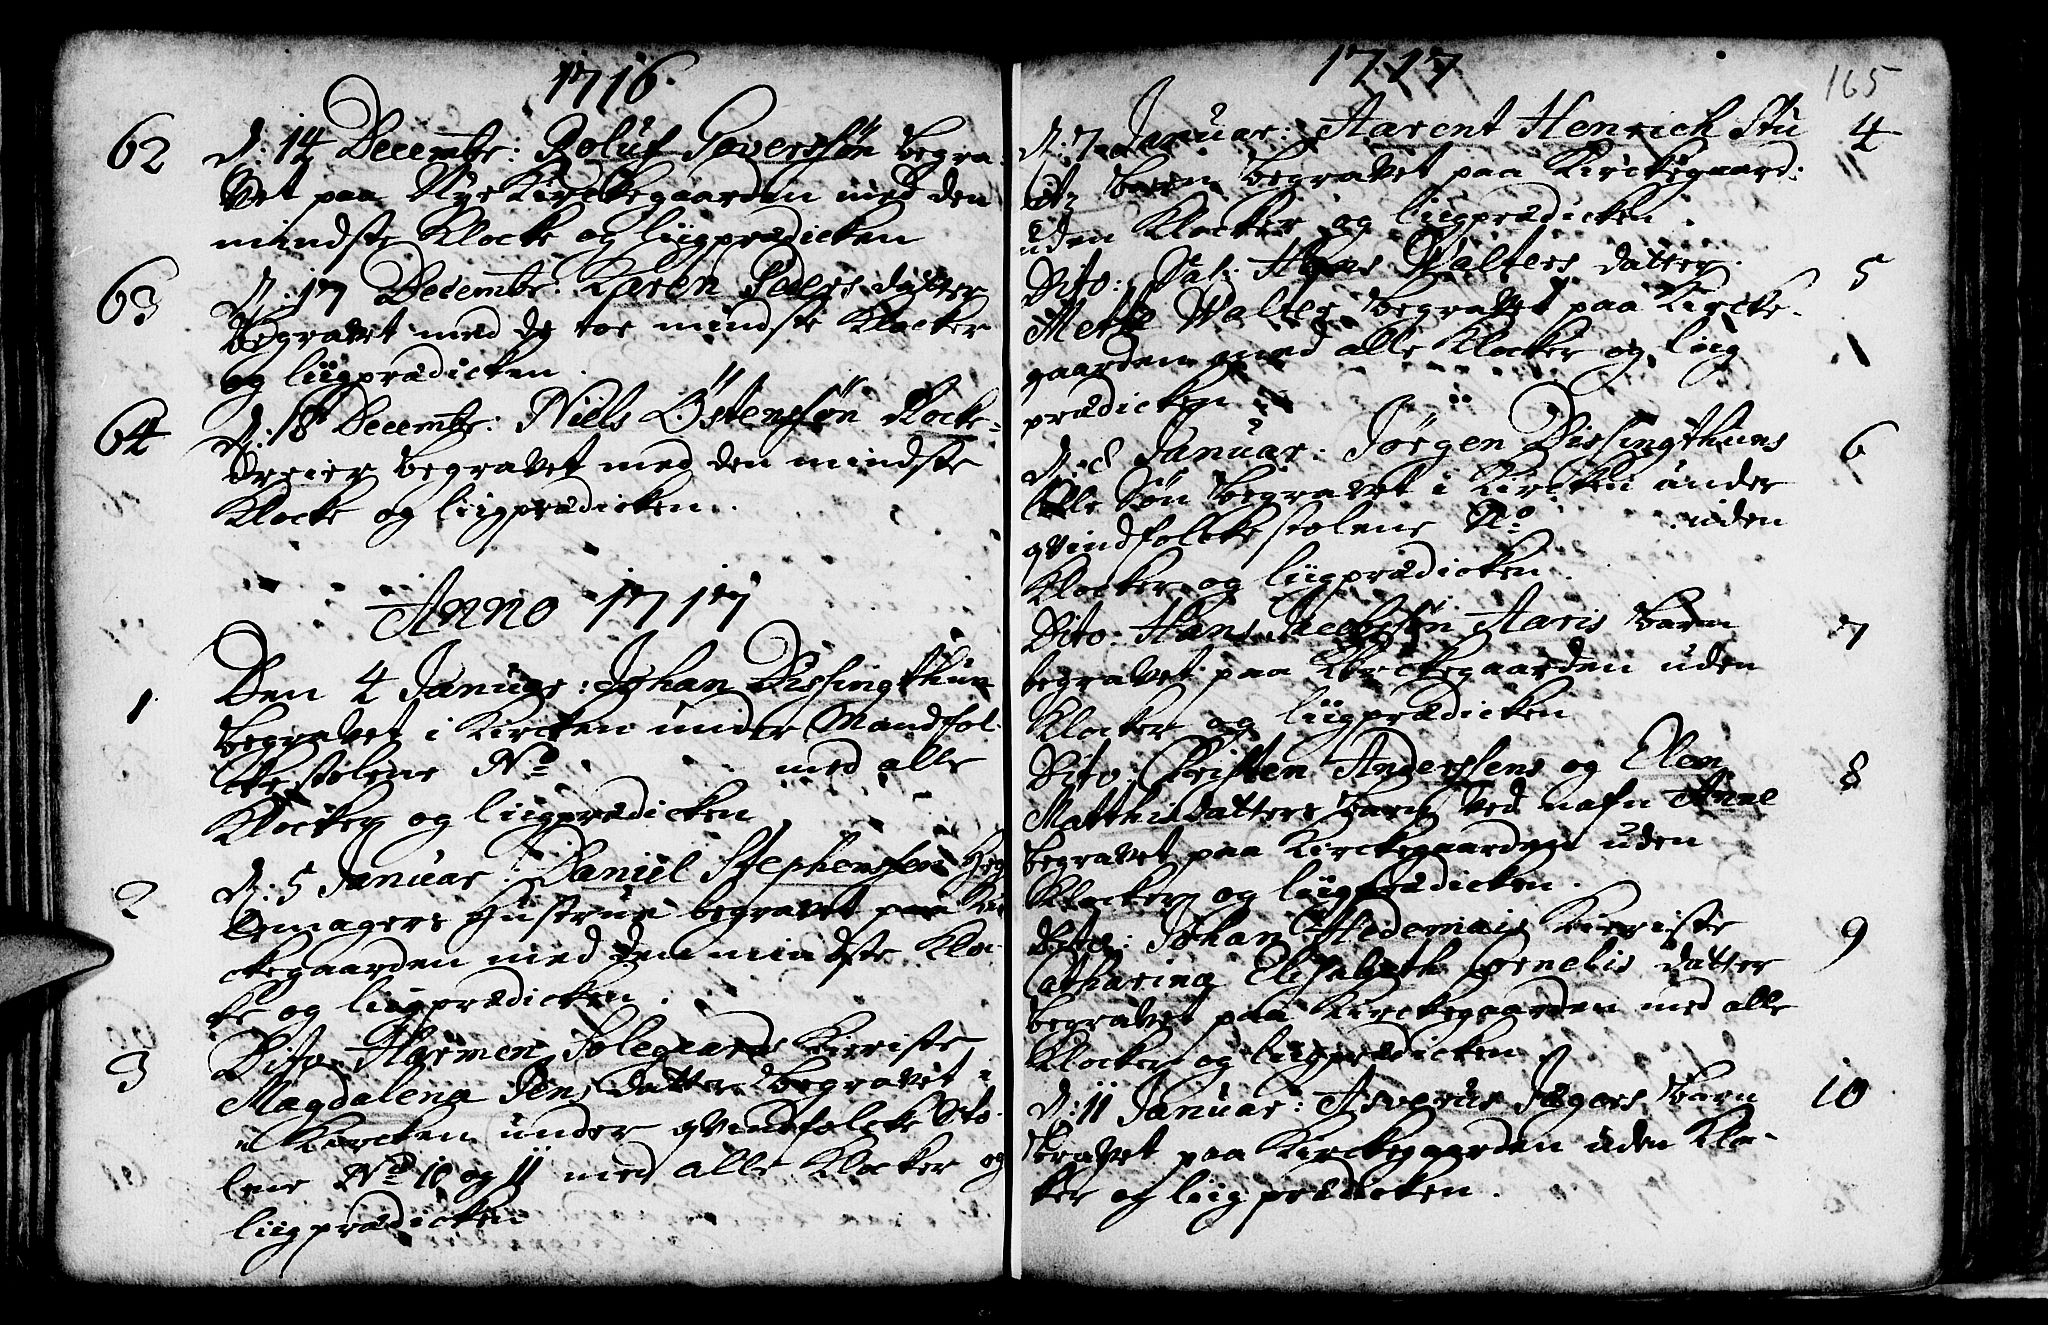 1716.
62
D: 14 Decembr: Roluf Goverssøn begra-
vet paa Nye Kirckegaarden med den
mindste Klocke og liigprædicken
63
D: 17 Decembr: Karen Peders datter
begravet med de toe mindste Klocker
og liigprædicken.
64
D: 18 Decembr: Niels Østenssøn Rocke-
dreier begravet med den mindste
Klocke og liigprædicken.
Anno 1717
1
Den 4 Januar: Johan Dissingthun
begravet i Kircken under Mandfol-
cke stolene No med alle
Klocker og liigprædicken
2
D: 5 Januar: Daniel Stephenssen
begravet paa Kir
ckegaarden med den mindste Klo-
cke og liigprædicken.
3
Dito Harmen Solegaards Kieriste
Magdalena Jens datter begravet
i Kircken under qvindfolcke Sto-
lene No 10 og 11 med alle Klocker og
liigprædicken
1717
165
D: 7 Januar: Aarent Henrich Stu
4
barn begravet paa Kirckegaard:
uden Klocker og liigprædicken.
Dito: Sal: Hans Walters datter
5
Mette Walter begravet paa Kircke-
gaarden med alle Klocker og liig
prædicken
D: 8 Januar: Jørgen Dissingthuns
6
lille Søn begravet i Kircken under
qvindfolcke stolene No uden
Klocker og liigprædicken.
Dito: Hans Jacobsøn Aaris barn
7
begravet paa Kirckegaarden uden
Klocker og liigprædicken
Dito: Christen Anderssens og Elen
8
Matthisdatters barn ved nafn Anne
begravet paa Kirckegaarden uden
Klocker og liigprædicken.
Dito: Johan Hedemais Kieriste
9
Catharina Elisabeth Cornelis datter
begravet paa Kirckegaarden med alle
Klocker og liigprædicken
D: 11 Januar: Asverus Jægers barn
10
begravet paa Kirckegaarden uden Klo-
cker og liigprædicken.